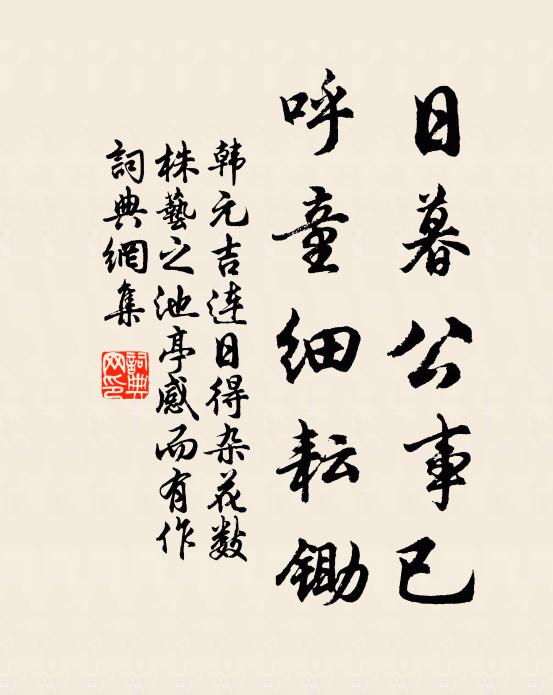 日暮公事已
呼童细耘锄
韩元吉连日得杂花数
株藝之池亭感而有作
詞典網集
詞典
网印